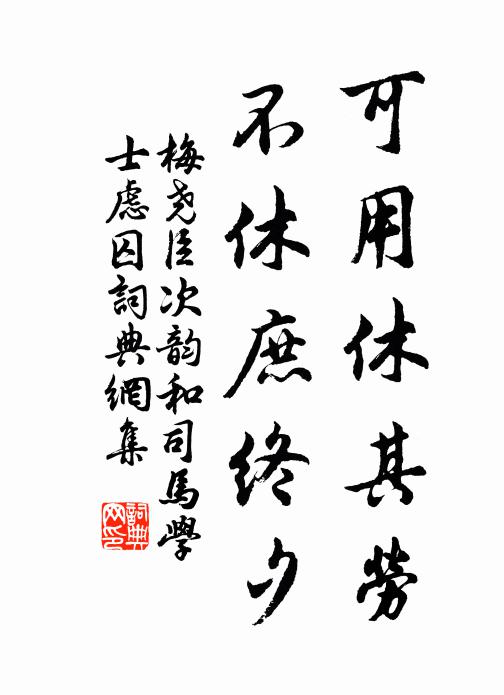 可用休其勞
不休庶終夕
梅堯臣次韵和司馬學
士慮囚詞典網集
詞典
网印